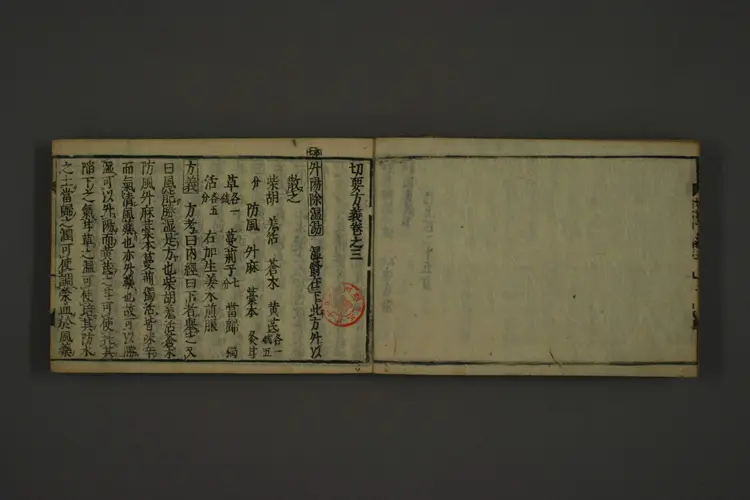 切要方義卷之三
升陽除濕湯 濕鬱在下此方升以
散之
柴胡 羌活 蒼朮 黃芪各一錢五
分 防風 升麻 藁本 灸甘
草各一錢 蔓荊子七分 當歸 獨
活各五分 右加生姜水煎服
方義 方考曰內經曰下者舉之又
曰風能勝濕是方也柴胡羌活蒼朮
防風升麻藁本蔓荊獨活皆味辛
而氣清風藥也亦升藥也故可以勝
濕可以升陽而黃芪之甘可使托其
陷下之氣甘草之溫可使培其防水
之土當歸之潤可使調榮血於風藥